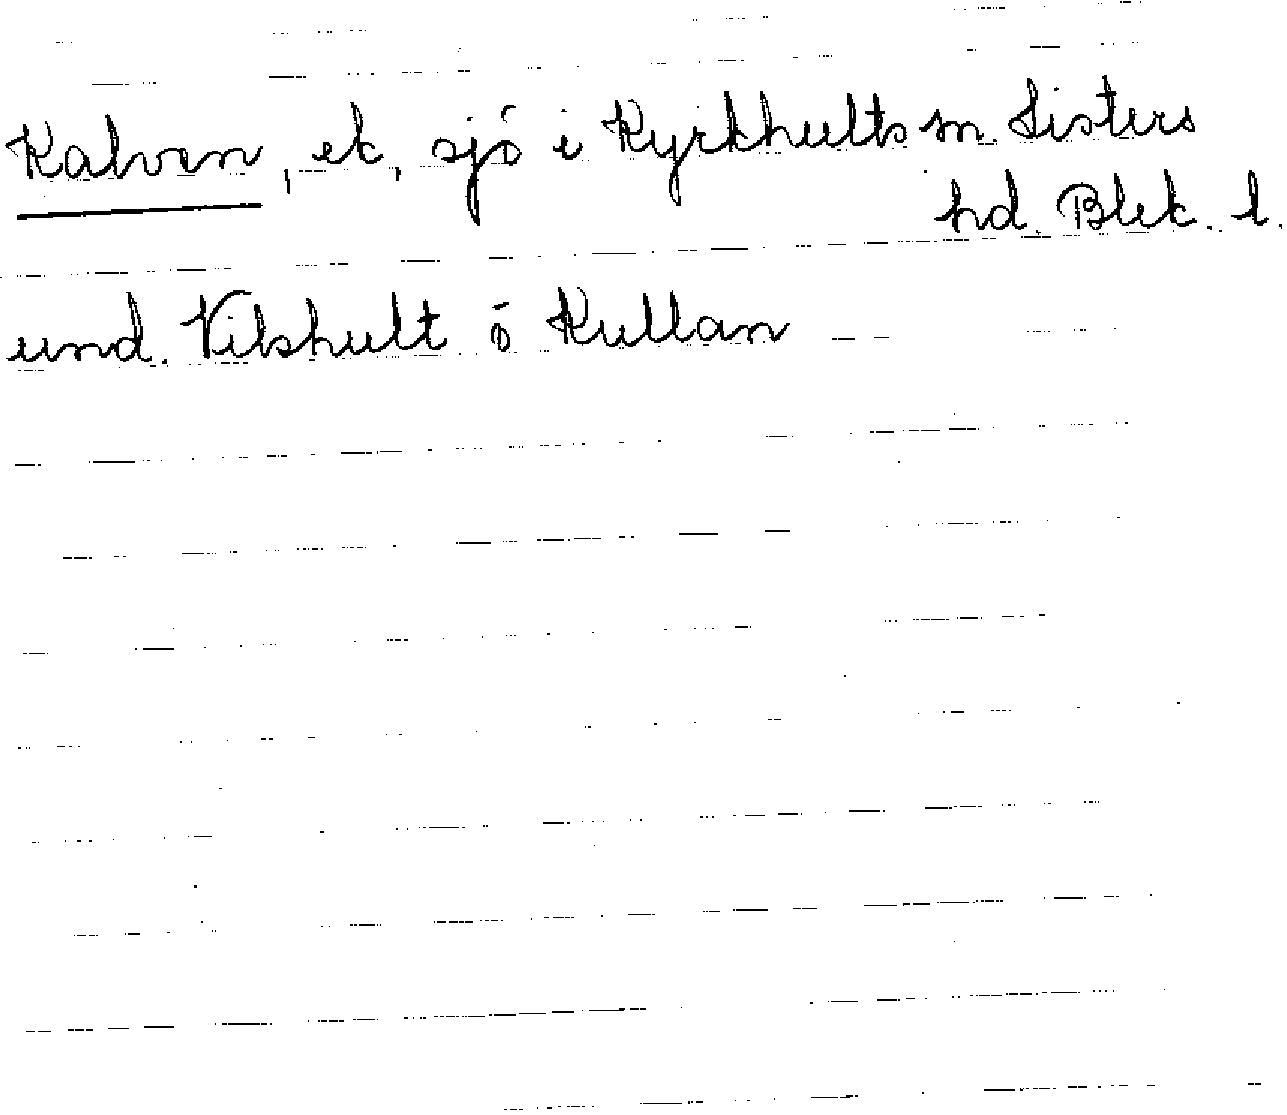 Kalven, ek, sjö i Kyrkhults sn. Listers
hd. Blek. l.
und. Vilshult ö Kullan